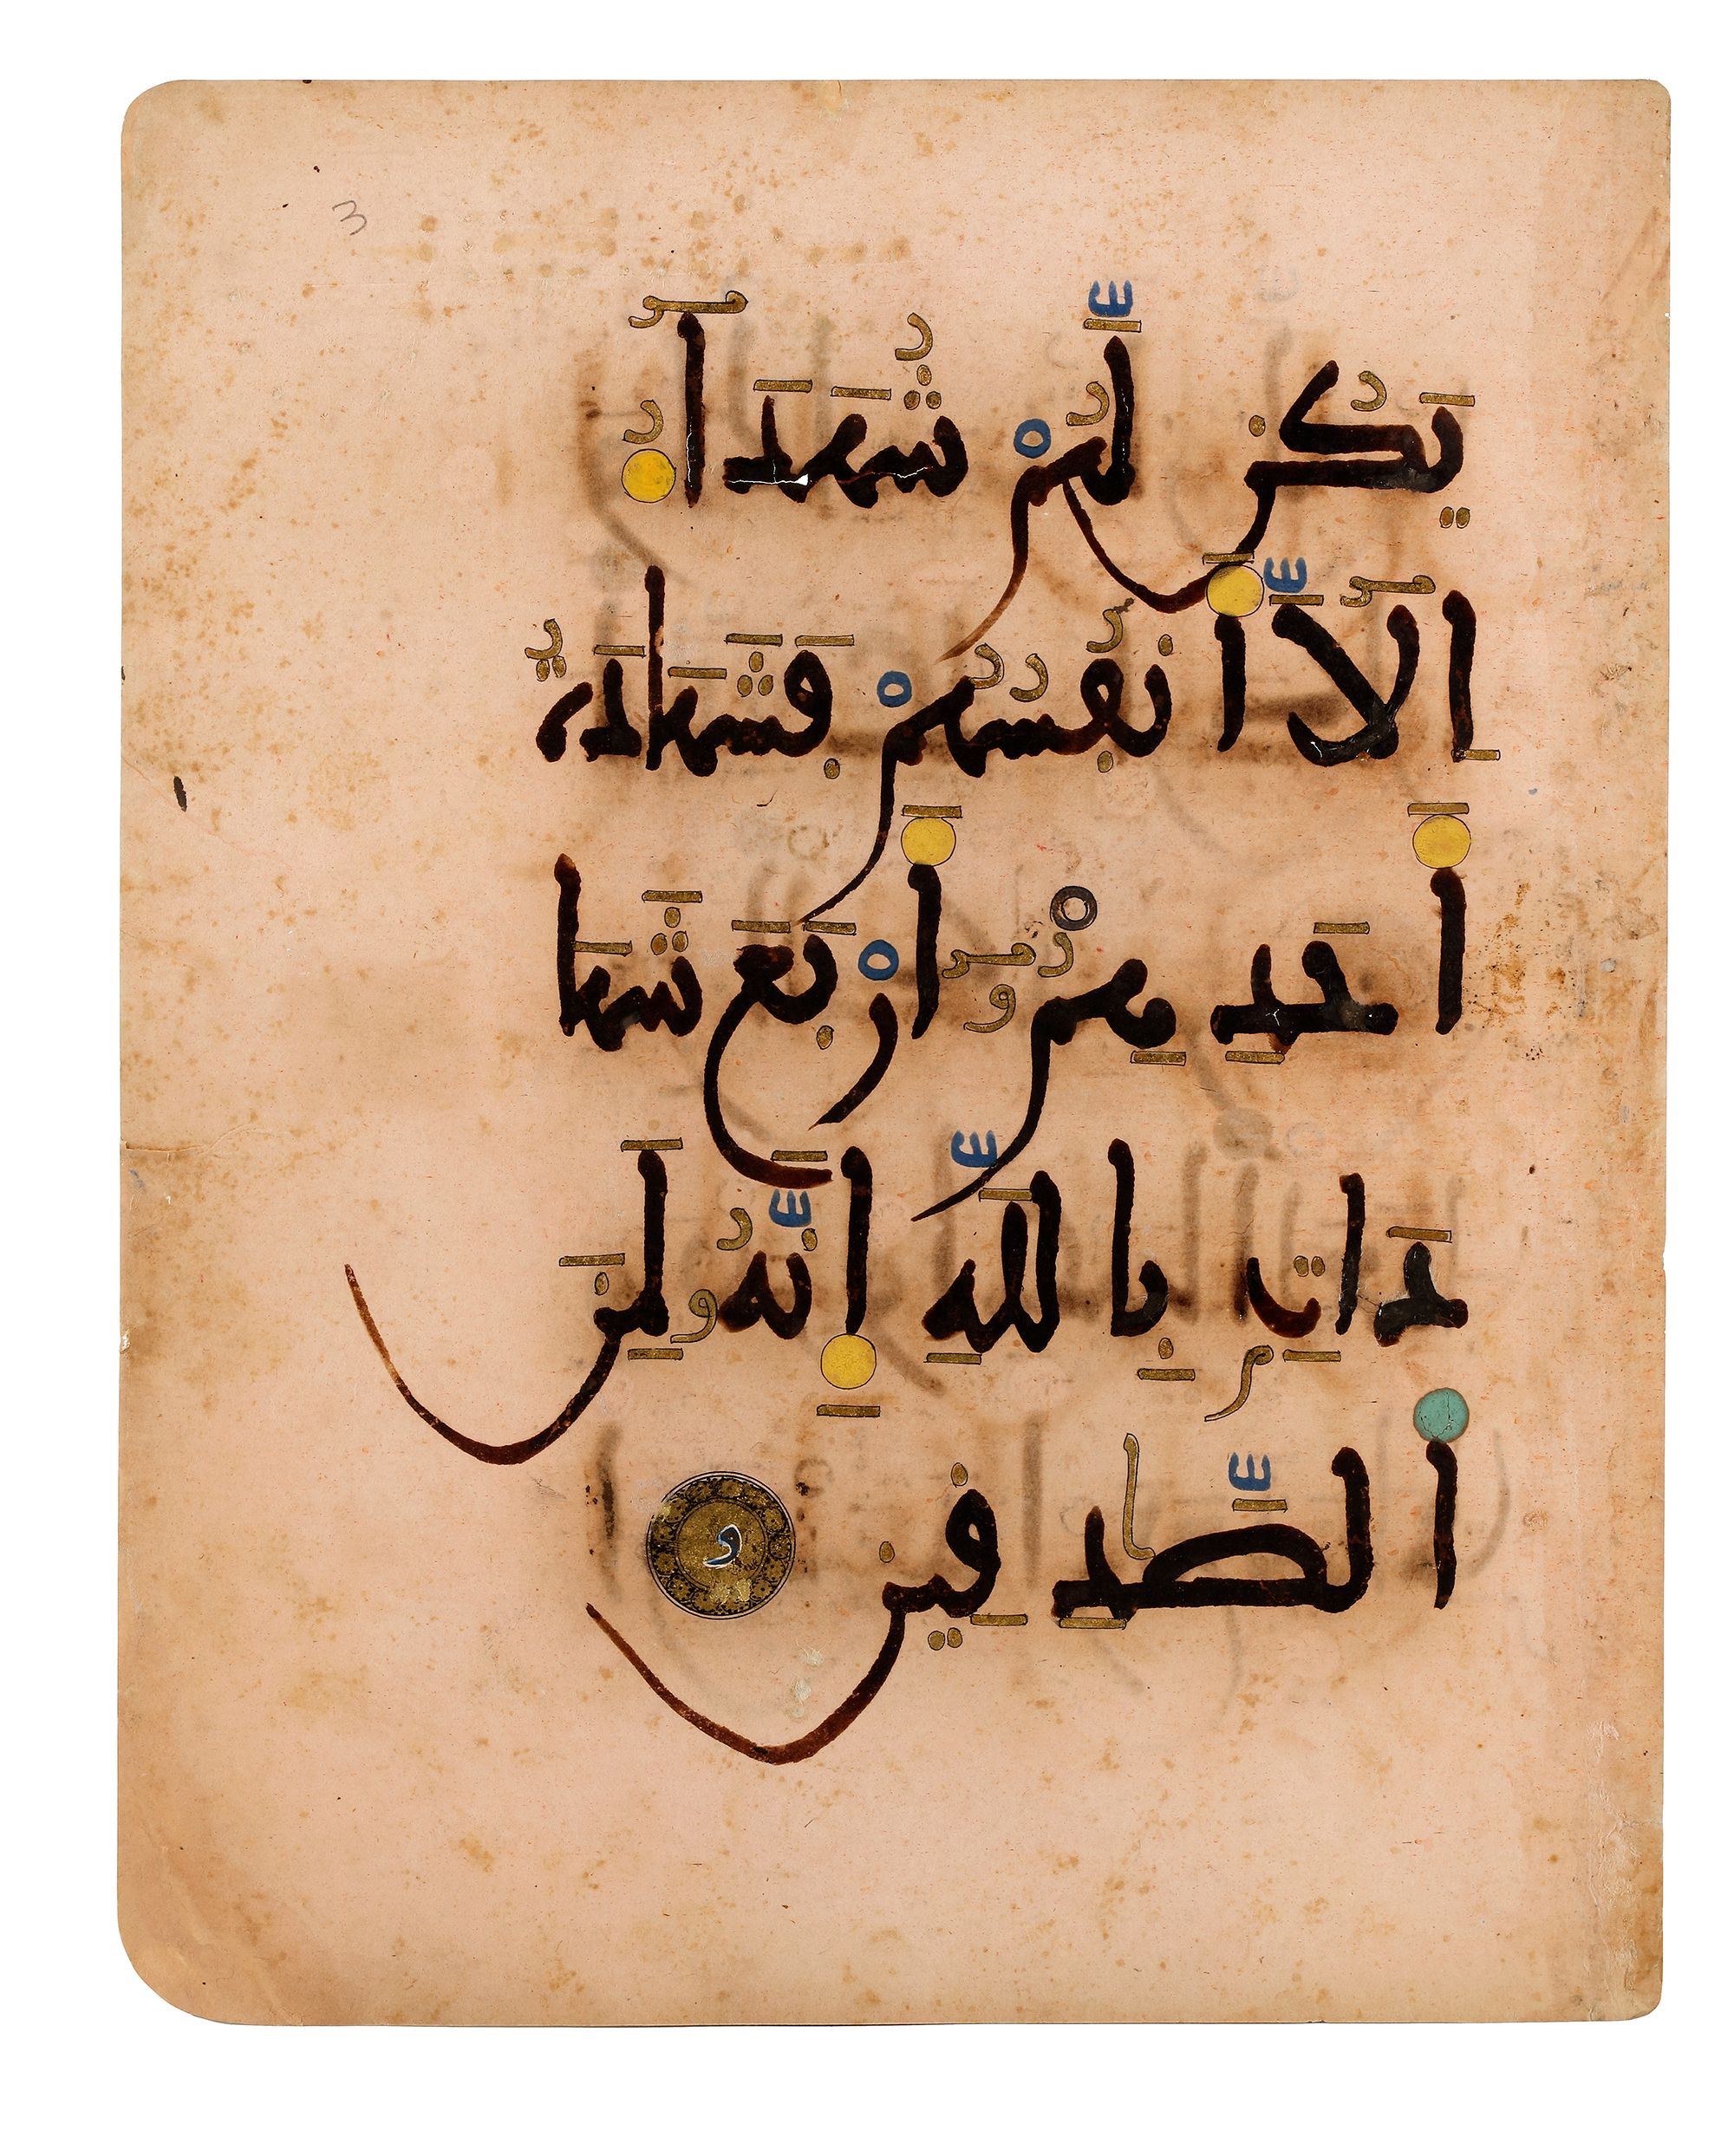 3
يَكُن لَّهُمْ شُهَدَآءُ
اِلَّآ أَنفُسُهُمْ فَشَهَادَةُ
أَحَدِهِمُۥٓ أَرْبَعَ شَهَا
دَاتٍ بِاللَّهِ إِنَّهُۥ لَمِنَ
الصَّٰدِقِينَ و